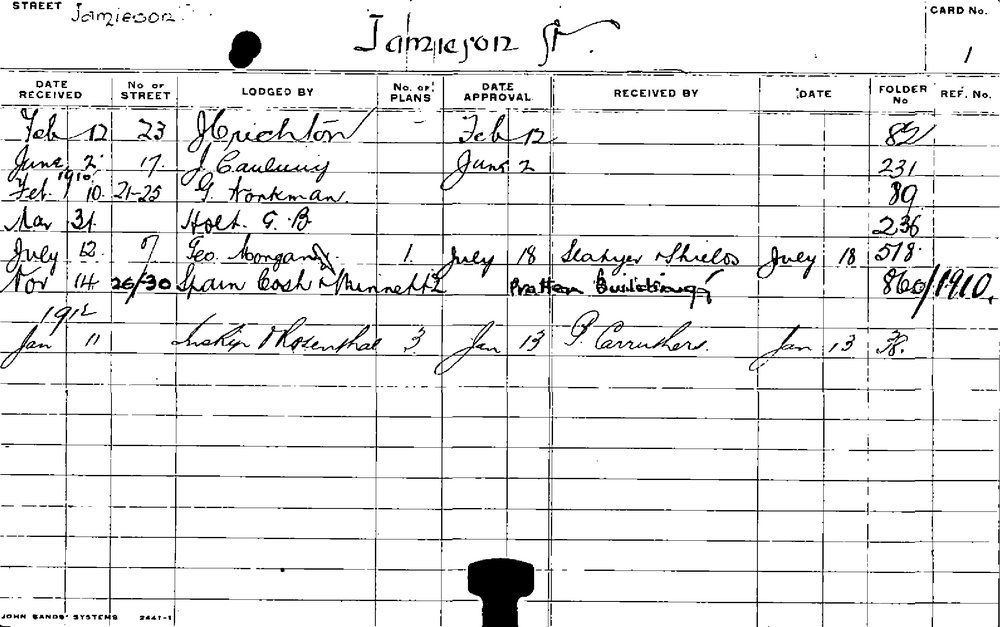 STREET Jamieson
Jamieson St.
CARD No. 1
DATE RECEIVED No OF STREET LODGED BY No. OF PLANS DATE APPROVAL RECEIVED BY DATE FOLDER No REF. No.
Feb 12 23 J Crichton - Feb 12 82
June 2 17. J. June 2 231
1910
Feb 10. 21-25 G. Workman. 89
Mar 31. Holt. G. B. 236
July 12. 7 Geo. Morgan 1. July 18 Slatyer & Shields July 18 518
Nov 14 26/30 Spain Cosh & Minnett Pratten Buildings 860/1910.
1912
Jan 11 Inskip & Rosenthal 3 Jan 13 P. Carruthers. Jan 13 38.
JOHN SANDS' SYSTEMS 2441-1